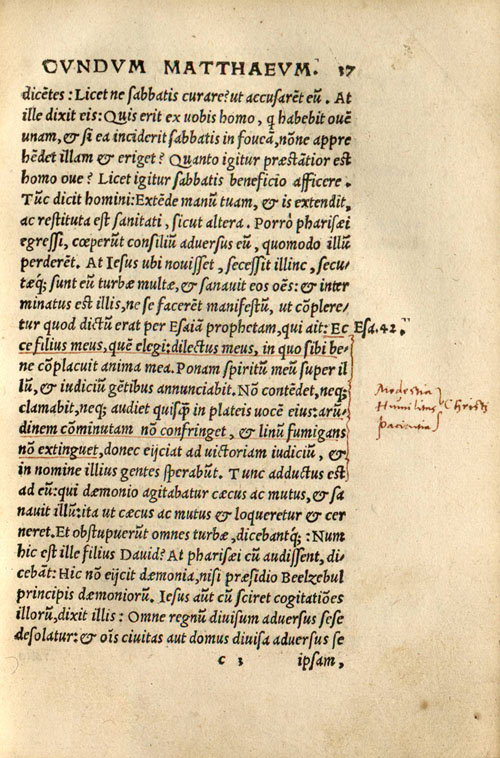 CVNDVM MATTHAEVM. 37
dicētes: Licet ne sabbatis curare? ut accusarēt eū. At
ille dixit eis: Quis erit ex uobis homo, q habebit ouē
unam, & si ea inciderit sabbatis in foueā, nōne appre
hēdet illam & eriget? Quanto igitur præstātior est
homo oue? Licet igitur sabbatis beneficio afficere.
Tūc dicit homini: Extēde manū tuam, & is extendit,
ac restituta est sanitati, sicut altera. Porrò pharisæi
egressi, cœperūt consiliū aduersus eū, quomodo illū
perderēt. At Iesus ubi nouisset, secessit illinc, secu-
tæq; sunt eū turbæ multæ, & sanauit eos oēs: & inter
minatus est illis, ne se facerēt manifestū, ut cōplere-
tur quod dictū erat per Esaiā prophetam, qui ait: Ec Esa.42.
ce filius meus, quē elegi: dilectus meus, in quo sibi be-
ne cōplacuit anima mea. Ponam spiritū meū super il
lū, & iudiciū gētibus annunciabit. Nō contēdet, neq;
clamabit, neq; audiet quisq̃ in plateis uocē eius: aru-
dinem cōminutam nō confringet, & linū fumigans
nō extinguet, donec eijciat ad uictoriam iudiciū, &
in nomine illius gentes sperabūt. Tunc adductus est
ad eū: qui dæmonio agitabatur cæcus ac mutus, & sa
nauit illū: ita ut cæcus ac mutus & loqueretur & cer
neret. Et obstupuerūt omnes turbæ, dicebantq;: Num
hic est ille filius Dauid? At pharisæi cū audissent, di-
cebāt: Hic nō eijcit dæmonia, nisi præsidio Beelzebul
principis dæmoniorū. Iesus aūt cū sciret cogitatiōes
illorū, dixit illis: Omne regnū diuisum aduersus sese
desolatur: & oīs ciuitas aut domus diuisa aduersus se
c 3 ipsam,
Modestia
Humilitas Christi
paciencia